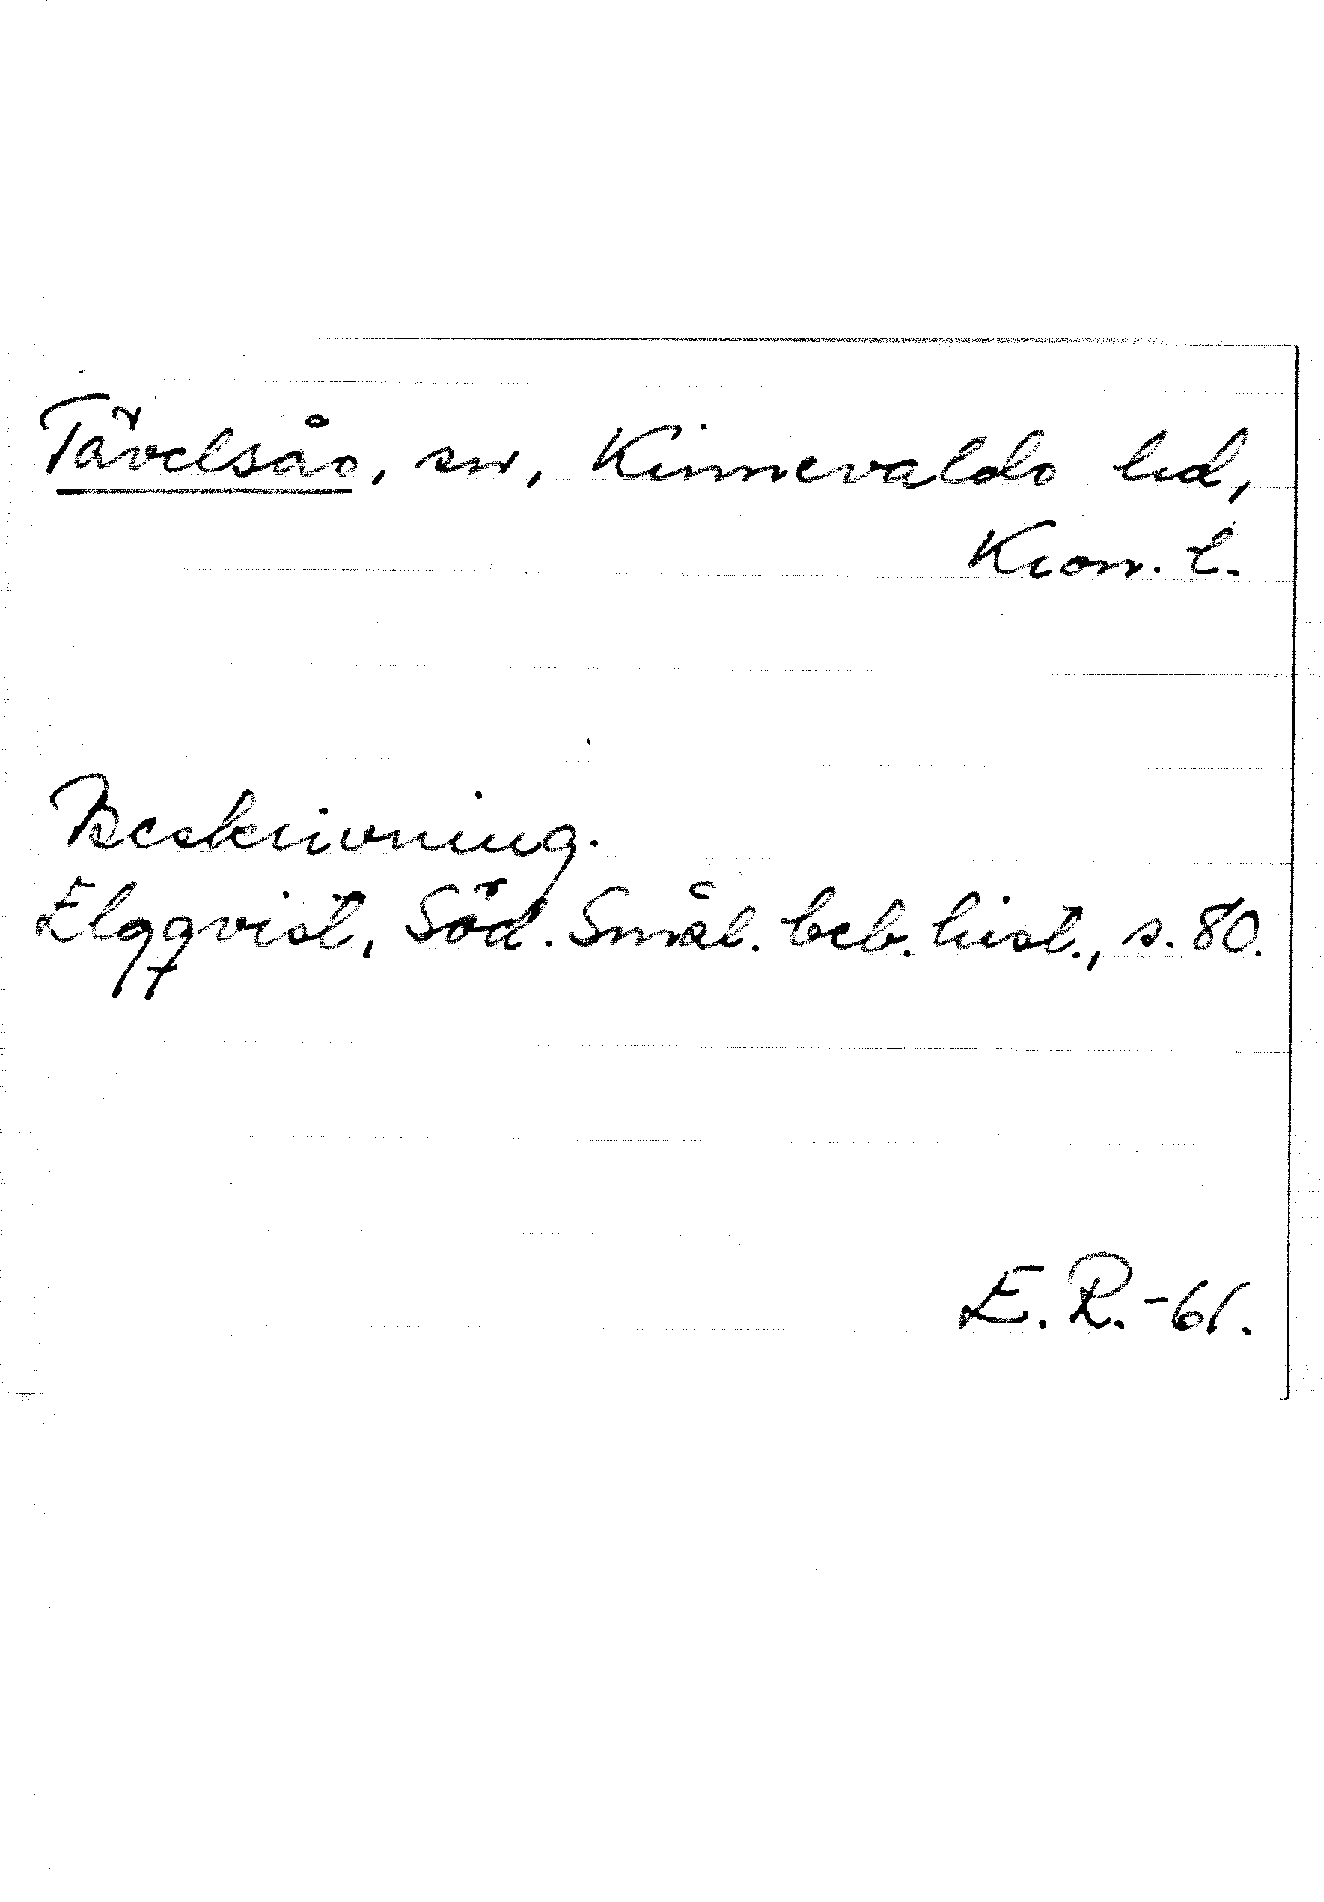 Tävelsås, sn, Kinnevalds hd,
Kron. l.
Beskrivning.
Elgqvist, Söd. Smål. beb. hist., s. 80.
E. R. -61.